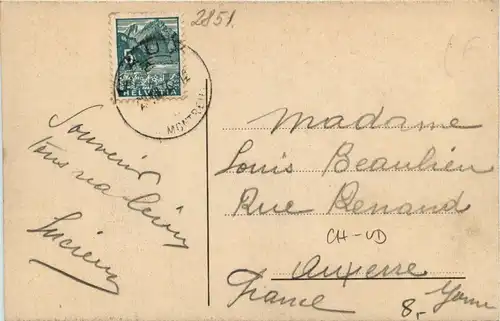 2851.
5
HELVETIA
MONTREUX
Souvenir
Lucienne
Madame
Louis Beaulieu
Rue Renand
CH-VD
Auxerre
France
8,- Yonne